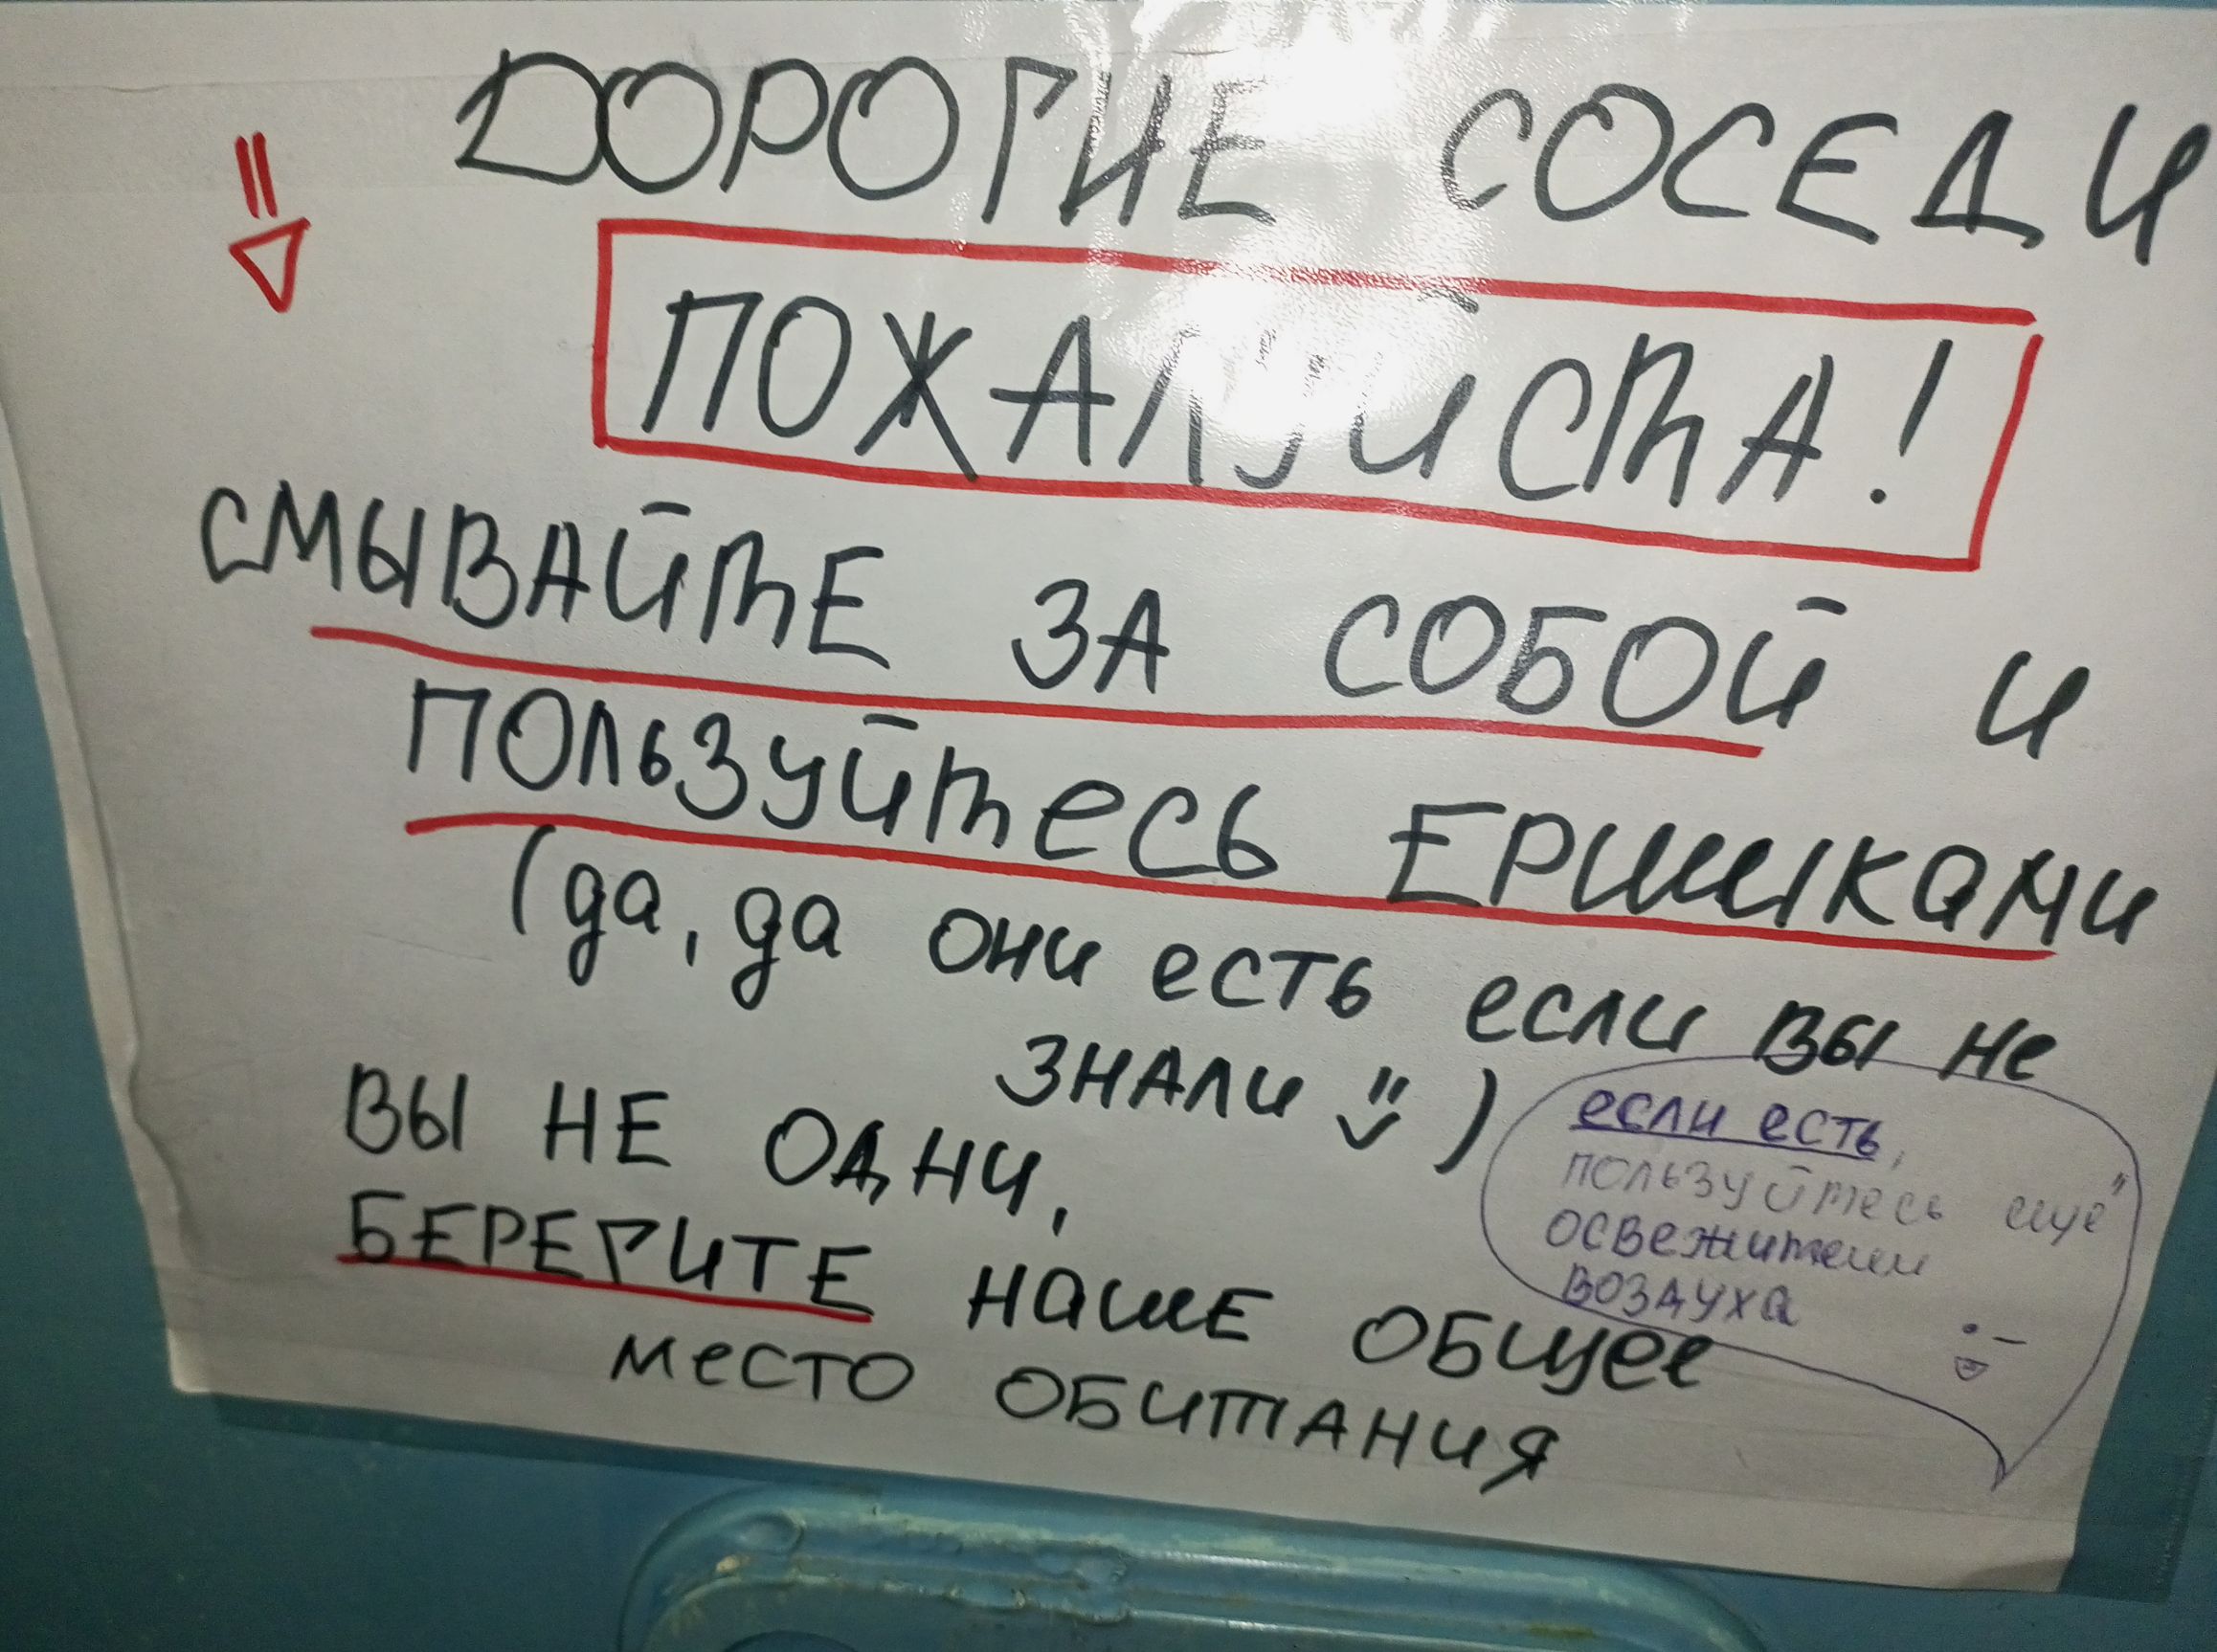 ДОРОГИЕ СОСЕДИ
ПОЖАЛУЙСТА!
СМЫВАЙТЕ ЗА СОБОЙ И
ПОЛЬЗУЙТЕСЬ ЕРШИКАМИ
(да, да они есть если вы не
ЗНАЛИ)
ВЫ НЕ ОДНИ,
БЕРЕГИТЕ НАШЕ ОБЩЕЕ
МЕСТО ОБИТАНИЯ
если есть,
пользуйтесь ещё
освежителем
воздуха